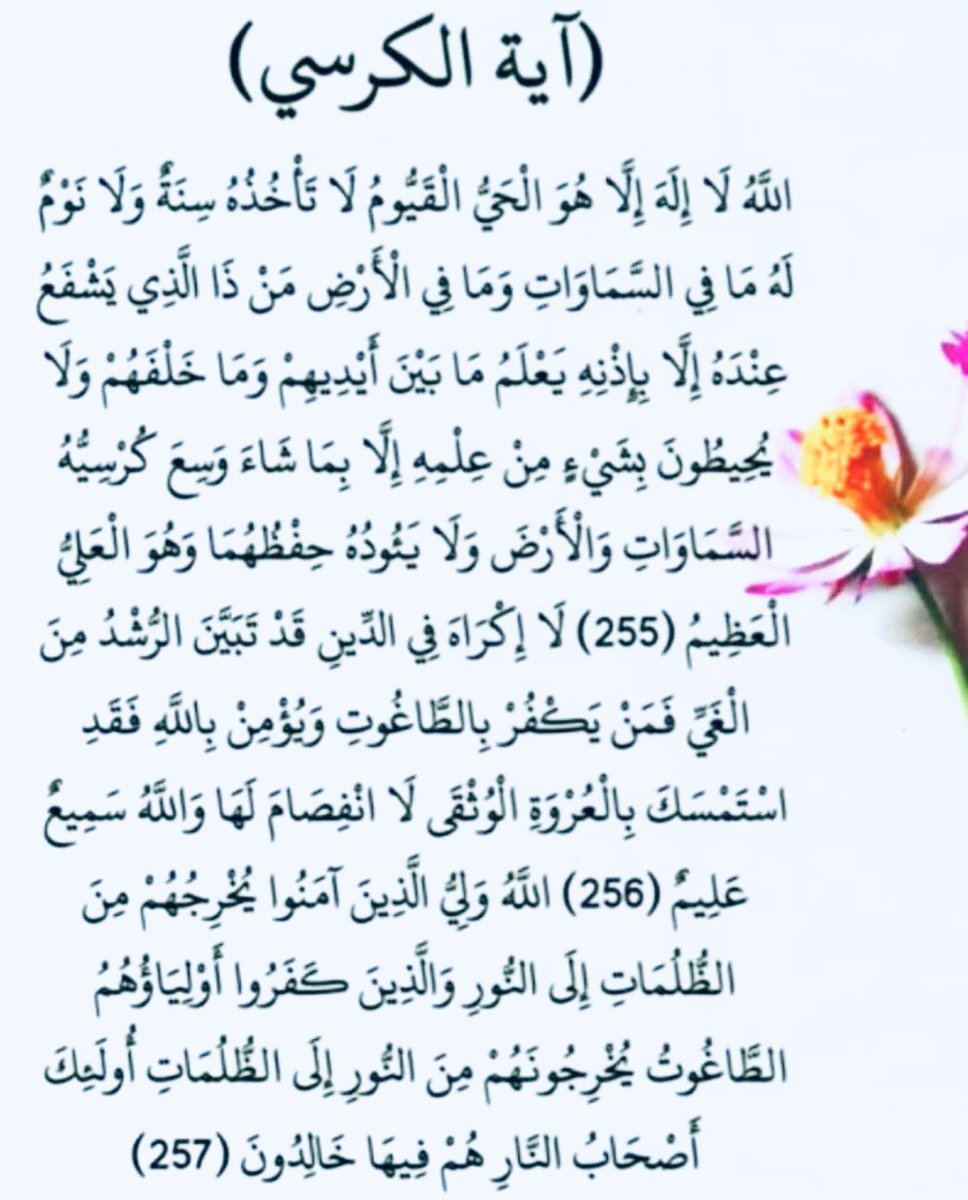 (آية الكرسي)
اللَّهُ لَا إِلَهَ إِلَّا هُوَ الْحَيُّ الْقَيُّومُ لَا تَأْخُذُهُ سِنَةٌ وَلَا نَوْمٌ
لَهُ مَا فِي السَّمَاوَاتِ وَمَا فِي الْأَرْضِ مَنْ ذَا الَّذِي يَشْفَعُ
عِنْدَهُ إِلَّا بِإِذْنِهِ يَعْلَمُ مَا بَيْنَ أَيْدِيهِمْ وَمَا خَلْفَهُمْ وَلَا
يُحِيطُونَ بِشَيْءٍ مِنْ عِلْمِهِ إِلَّا بِمَا شَاءَ وَسِعَ كُرْسِيُّهُ
السَّمَاوَاتِ وَالْأَرْضَ وَلَا يَئُودُهُ حِفْظُهُمَا وَهُوَ الْعَلِيُّ
الْعَظِيمُ (255) لَا إِكْرَاهَ فِي الدِّينِ قَدْ تَبَيَّنَ الرُّشْدُ مِنَ
الْغَيِّ فَمَنْ يَكْفُرْ بِالطَّاغُوتِ وَيُؤْمِنْ بِاللَّهِ فَقَدِ
اسْتَمْسَكَ بِالْعُرْوَةِ الْوُثْقَى لَا انْفِصَامَ لَهَا وَاللَّهُ سَمِيعٌ
عَلِيمٌ (256) اللَّهُ وَلِيُّ الَّذِينَ آمَنُوا يُخْرِجُهُمْ مِنَ
الظُّلُمَاتِ إِلَى النُّورِ وَالَّذِينَ كَفَرُوا أَوْلِيَاؤُهُمُ
الطَّاغُوتُ يُخْرِجُونَهُمْ مِنَ النُّورِ إِلَى الظُّلُمَاتِ أُولَئِكَ
أَصْحَابُ النَّارِ هُمْ فِيهَا خَالِدُونَ (257)